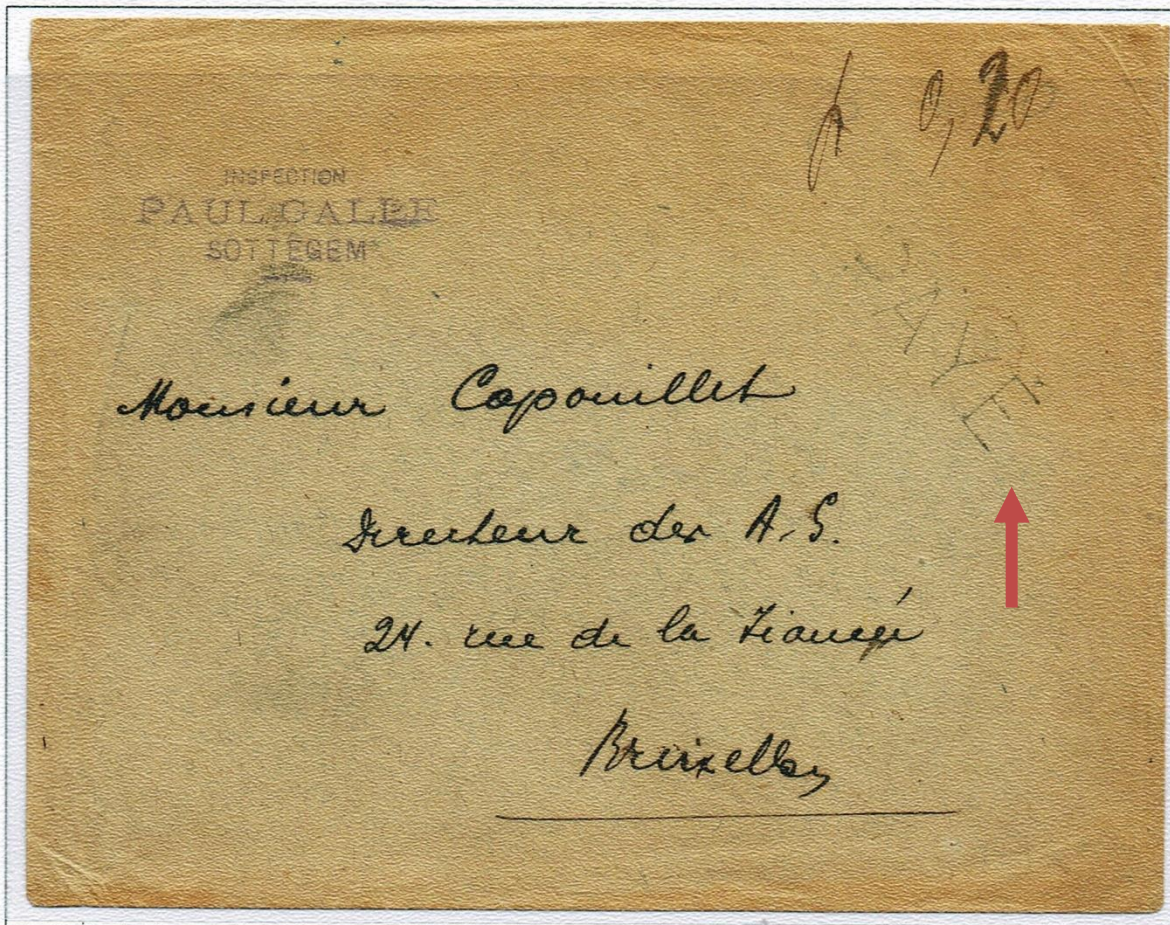 fr 0,20
INSPECTION
PAUL GALLE
SOTTEGEM
PAYÉ
Monsieur Capouillet
Directeur des A.G.
24. rue de la Fiancée
Bruxelles